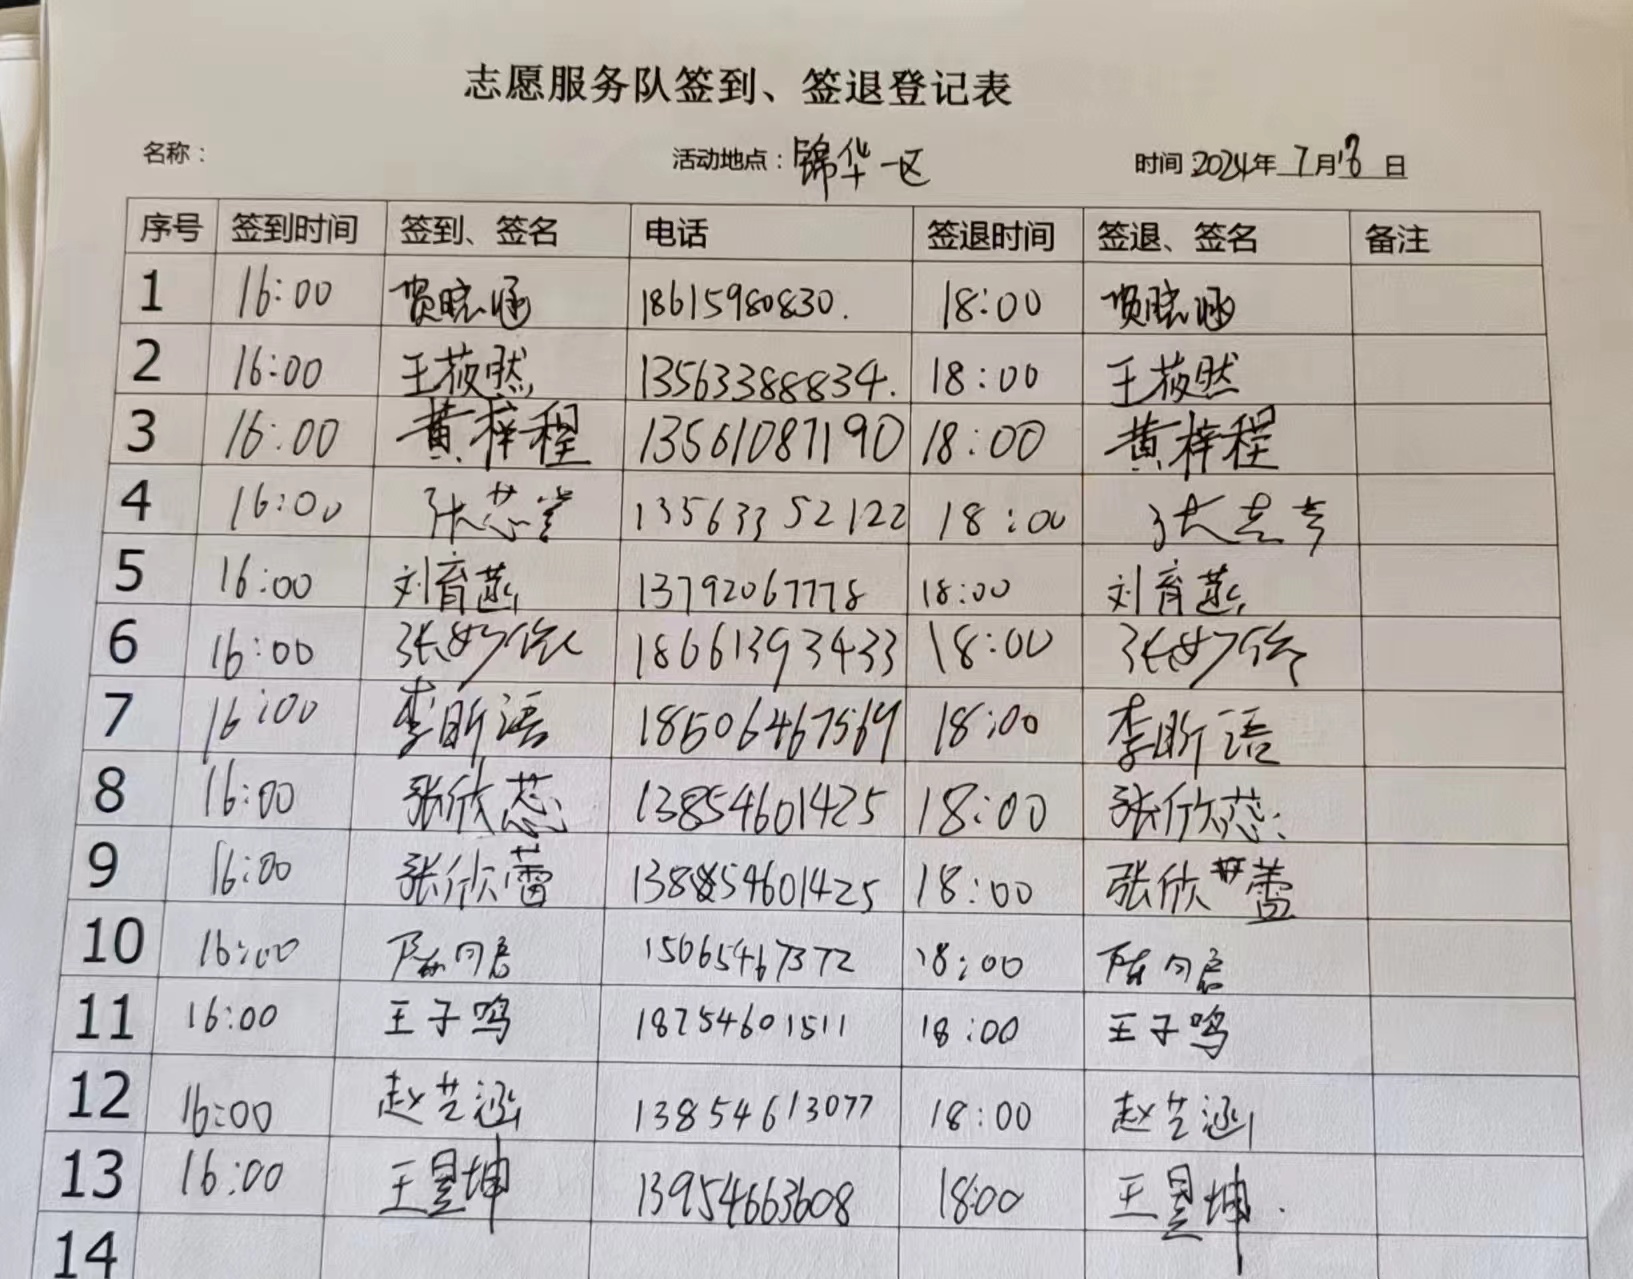 志愿服务队签到、签退登记表
名称： 活动地点：锦华一区 时间 2024年 7月18日
序号 签到时间 签到、签名 电话 签退时间 签退、签名 备注
1 16:00 贺晓涵 18615980830. 18:00 贺晓涵
2 16:00 王莜然 13563388834. 18:00 王莜然
3 16:00 黄梓程 13561087190 18:00 黄梓程
4 16:00 张芯 13563352122 18:00 张
5 16:00 刘育燕 13792067778 18:00 刘育燕
6 16:00 张妙 18661393433 18:00 张妙
7 16:00 李昕语 18506467569 18:00 李昕语
8 16:00 张欣蕊 13854601425 18:00 张欣蕊
9 16:00 张欣蕾 13854601425 18:00 张欣蕾
10 16:00 陈同启 15065467372 18:00 陈同启
11 16:00 王子鸣 18254601511 18:00 王子鸣
12 16:00 赵芝涵 13854613077 18:00 赵芝涵
13 16:00 王昱坤 13954663608 18:00 王昱坤.
14